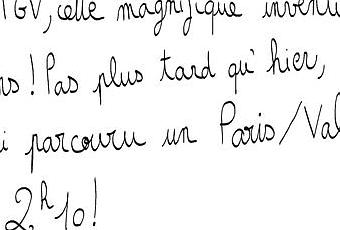 TGV, cette magnifique inventi
ns ! Pas plus tard qu'hier,
i parcouru un Paris/Val
2h10 !